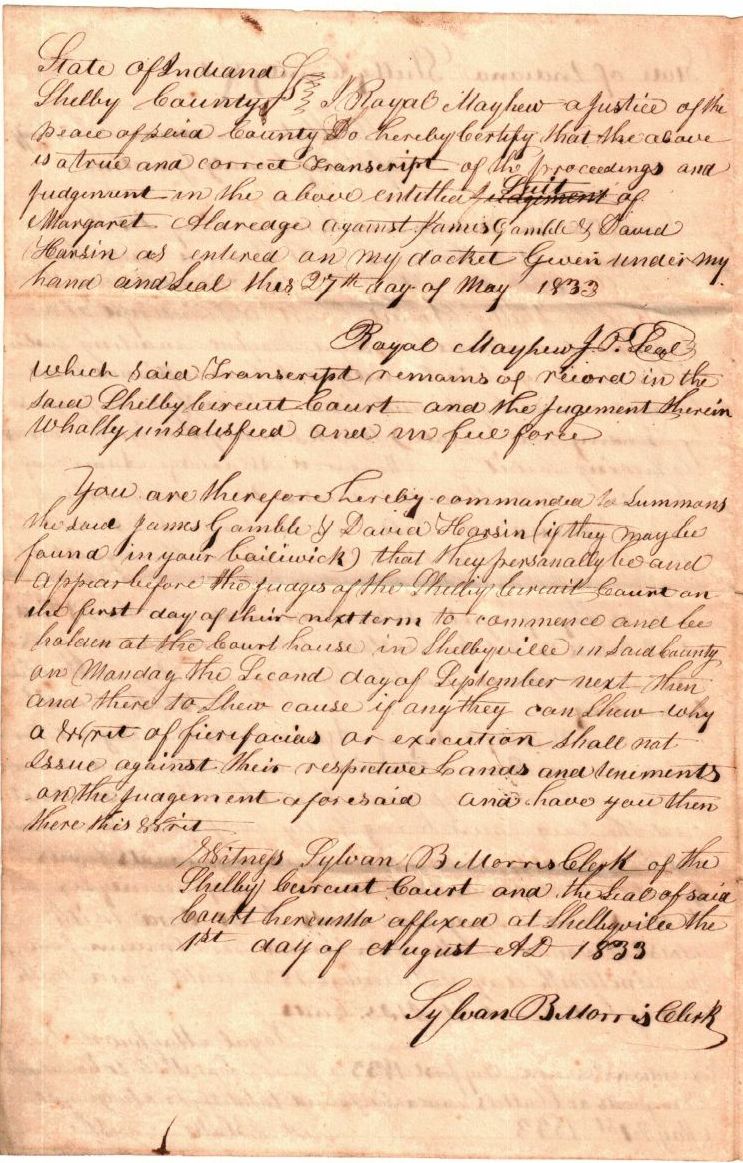 State of Indiana
Shelby County I Royal Mayhew a Justice of the
peace of said County Do hereby Certify that the above
is a true and correct Transcript of the proceedings and
Judgement in the above entitled Judgement Suit of
Margaret Aldredge against James Gamble & David
Harsin as entered on my docket Given under my
hand and Seal this 27th day of May 1833
Royal Mayhew J. P. Seal
which said Transcript remains of record in the
said Shelby Circuit Court and the Jugement therein
Whally unsatisfied and in full force
You are therefore hereby commanded to Summons
the said James Gamble & David Harsin (if they may be
found in your bailiwick) that they personally be and
appear before the judges of the Shelby Circuit Court on
the first day of their next term to commence and be
holden at the Court house in Shelbyville in Said County
on Monday the Second day of September next then
and there to Shew cause if any they can Shew why
a Writ of fierifacias or execution shall not
Issue against their respective Lands and tenements
on the Judgement aforesaid and have you then
there this Writ
Witness Sylvan B Morris Clerk of the
Shelby Circuit Court and the Seal of said
Court hereunto affixed at Shelbyville the
1st day of August AD 1833
Sylvan B Morris Clerk